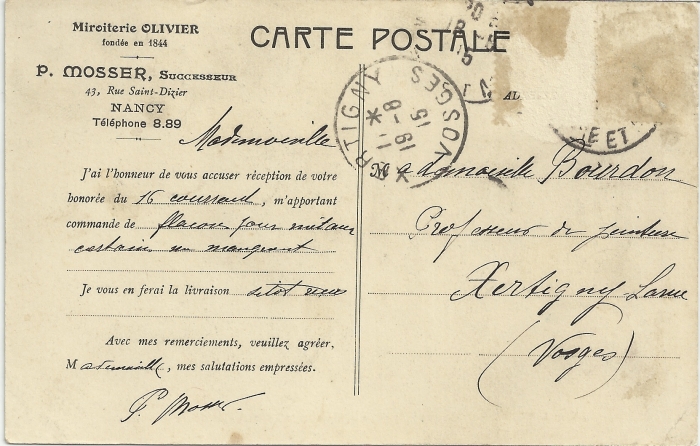 Miroiterie OLIVIER
fondée en 1844
P. MOSSER, SUCCESSEUR
43, Rue Saint-Dizier
NANCY
Téléphone 8.89
CARTE POSTALE
AD
XERTIGNY
VOSGES
19-8
15
E ET
Mademoiselle
J'ai l'honneur de vous accuser réception de votre
honorée du 16 courant, m'apportant
commande de flacon pour métaux
certains manquant
Je vous en ferai la livraison sitôt reçu
Avec mes remerciements, veuillez agréer,
Mademoiselle, mes salutations empressées.
P. Mosser
Mademoiselle Bourdon
Professeur de peinture
Xertigny
(Vosges)